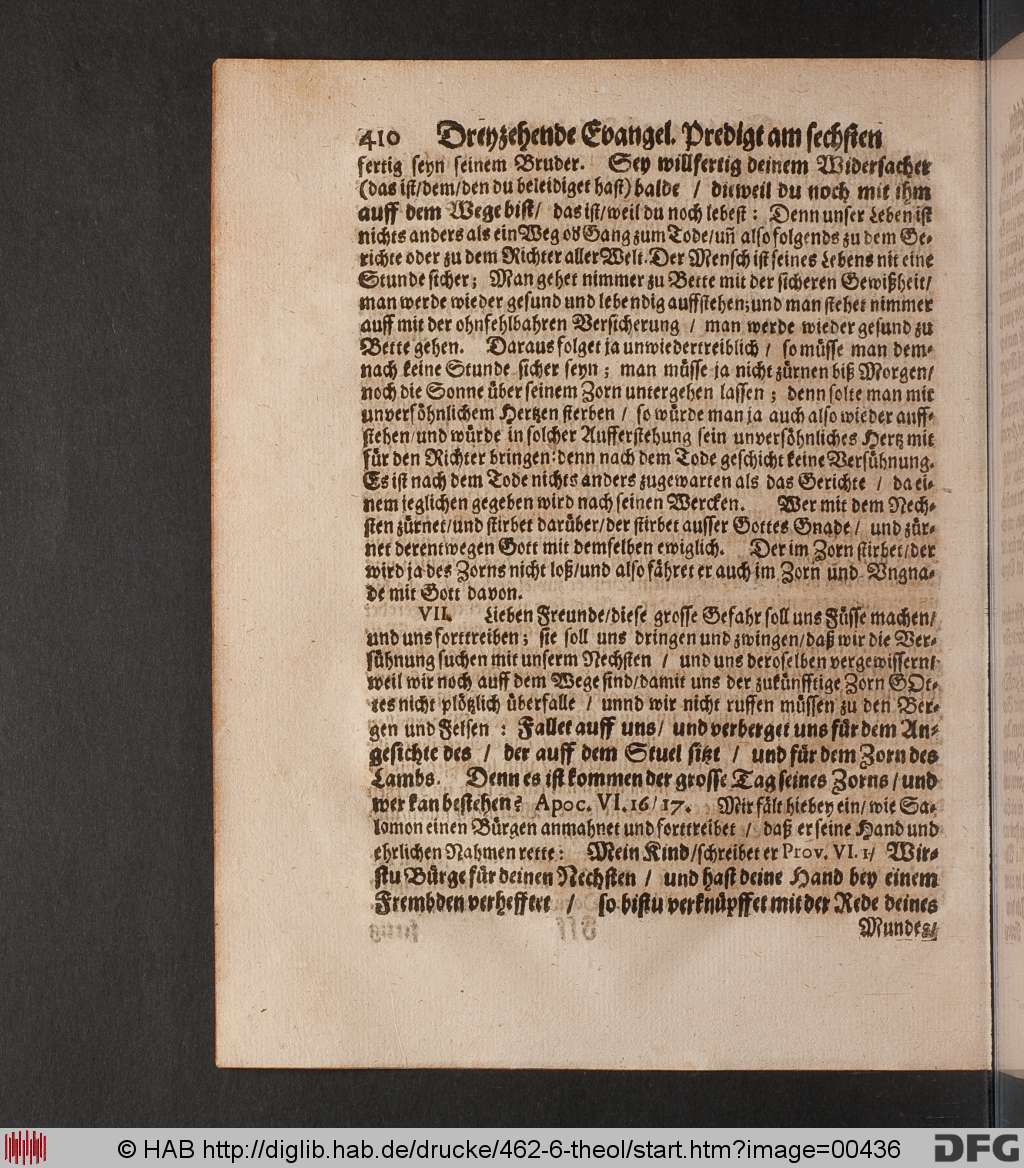 410 Dreyzehende Evangel. Predigt am sechsten
fertig seyn seinem Bruder. Sey willfertig deinem Widersacher
(das ist/dem/den du beleidiget hast) balde / dieweil du noch mit ihm
auff dem Wege bist/ das ist/weil du noch lebest: Denn unser Leben ist
nichts anders als ein Weg oď Gang zum Tode/uñ also folgends zu dem Ge-
richte oder zu dem Richter aller Welt. Der Mensch ist seines Lebens nit eine
Stunde sicher; Man gehet nimmer zu Bette mit der sicheren Gewißheit/
man werde wieder gesund und lebendig auffstehen; und man stehet nimmer
auff mit der ohnfehlbahren Versicherung / man werde wieder gesund zu
Bette gehen. Daraus folget ja unwiedertreiblich / so müsse man dem-
nach keine Stunde sicher seyn; man müsse ja nicht zürnen biß Morgen/
noch die Sonne über seinem Zorn untergehen lassen; denn solte man mit
unversöhnlichem Hertzen sterben / so würde man ja auch also wieder auff-
stehen/und würde in solcher Aufferstehung sein unversöhnliches Hertz mit
für den Richter bringen: denn nach dem Tode geschicht keine Versühnung.
Es ist nach dem Tode nichts anders zugewarten als das Gerichte / da ei-
nem jeglichen gegeben wird nach seinen Wercken. Wer mit dem Nech-
sten zürnet/und stirbet darüber/der stirbet ausser Gottes Gnade/ und zür-
net derentwegen Gott mit demselben ewiglich. Der im Zorn stirbet/der
wird ja des Zorns nicht loß/und also fähret er auch im Zorn und Vngna-
de mit Gott davon.
VII. Lieben Freunde/diese grosse Gefahr soll uns Füsse machen/
und uns forttreiben; sie soll uns dringen und zwingen/daß wir die Ver-
sühnung suchen mit unserm Nechsten / und uns deroselben vergewissern/
weil wir noch auff dem Wege sind/damit uns der zukünfftige Zorn GOt-
tes nicht plötzlich überfalle / unnd wir nicht ruffen müssen zu den Ber-
gen und Felsen: Fallet auff uns/ und verberget uns für dem An-
gesichte des / der auff dem Stuel sitzt / und für dem Zorn des
Lambs. Denn es ist kommen der grosse Tag seines Zorns/und
wer kan bestehen? Apoc. VI. 16/17. Mir fält hiebey ein/wie Sa-
lomon einen Bürgen anmahnet und forttreibet / daß er seine Hand und
ehrlichen Nahmen rette: Mein Kind/schreibet er Prov. VI. 1/ Wir-
stu Bürge für deinen Nechsten / und hast deine Hand bey einem
Frembden verhefftet / so bistu verknüpffet mit der Rede deines
Mundes/
© HAB http://diglib.hab.de/drucke/462-6-theol/start.htm?image=00436
DFG